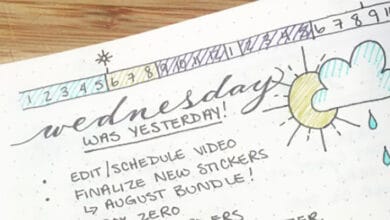 1 2 3 4 5 6 7 8 9 10 11 12 1 2 3 4 5 6 7 8 9
wednesday
WAS YESTERDAY!
• EDIT/SCHEDULE VIDEO
• FINALIZE NEW STICKERS
↳ AUGUST BUNDLE!
ZERO